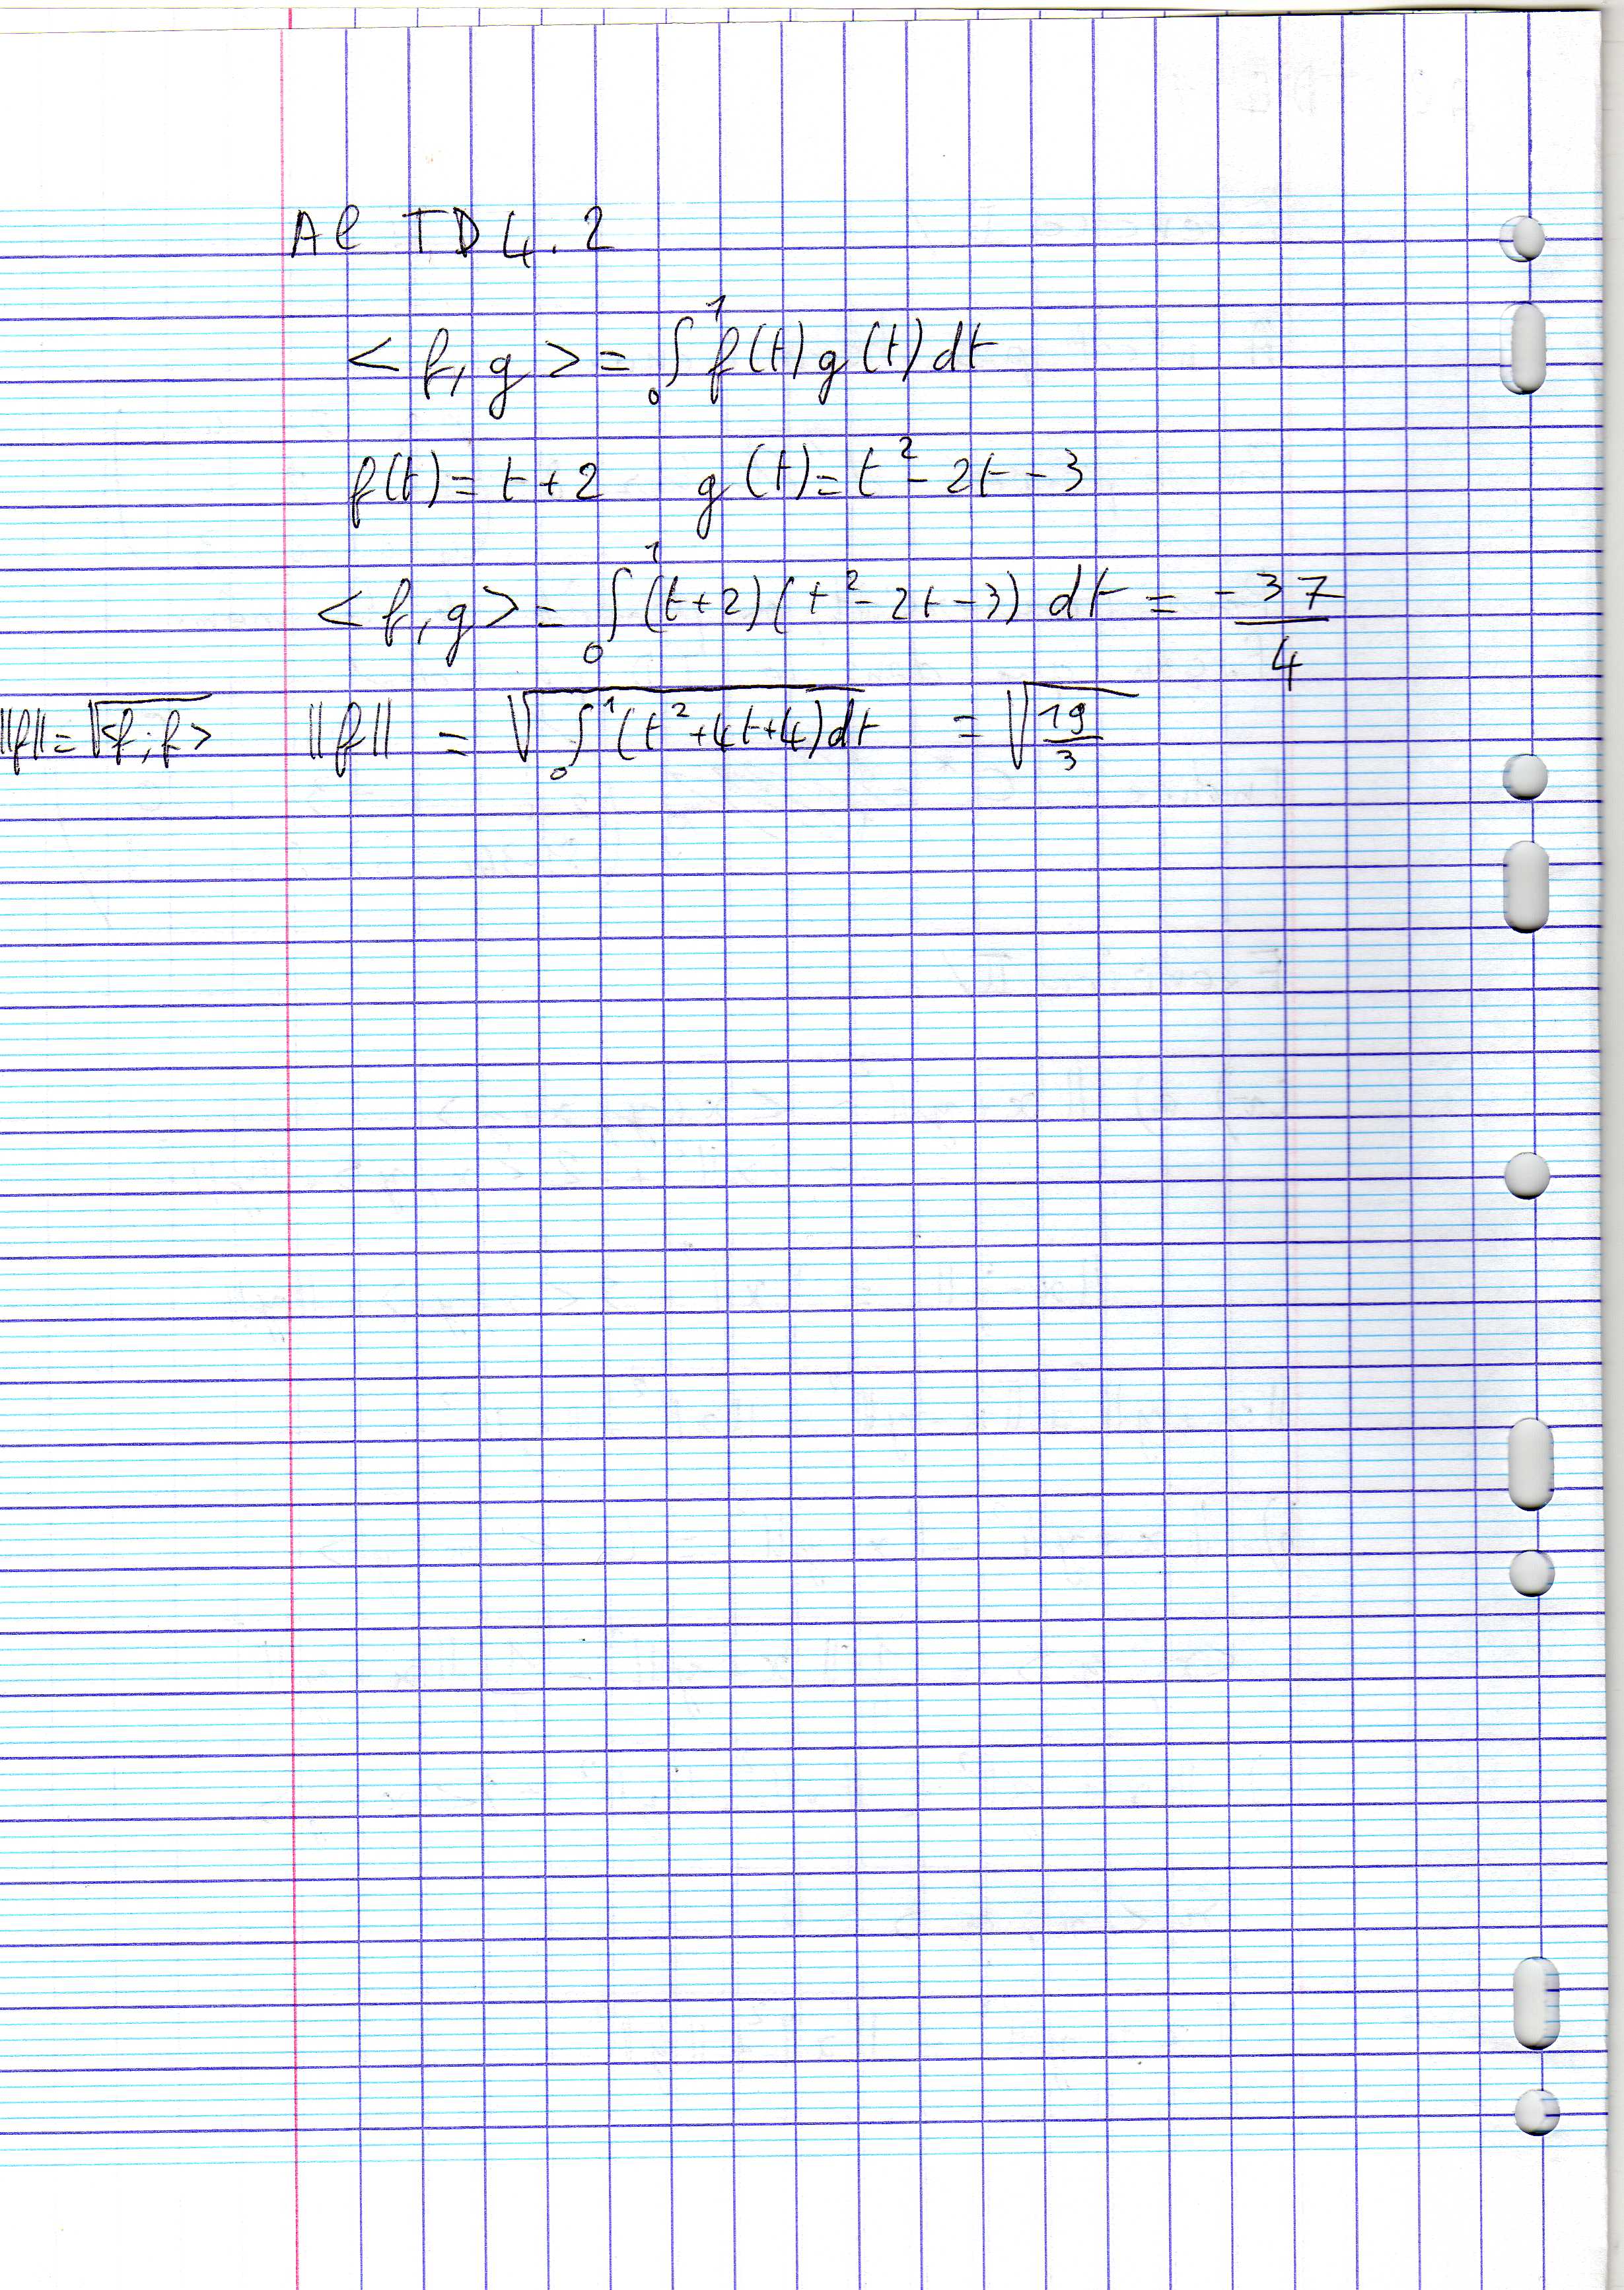 Al TD 4.2
<f, g> = ∫₀¹ f(t) g(t) dt
f(t) = t + 2   g(t) = t² - 2t - 3
<f, g> = ∫₀¹ (t+2)(t² - 2t - 3) dt = -37/4
||f|| = √<f; f>   ||f|| = √(∫₀¹ (t² + 4t + 4) dt) = √(19/3)